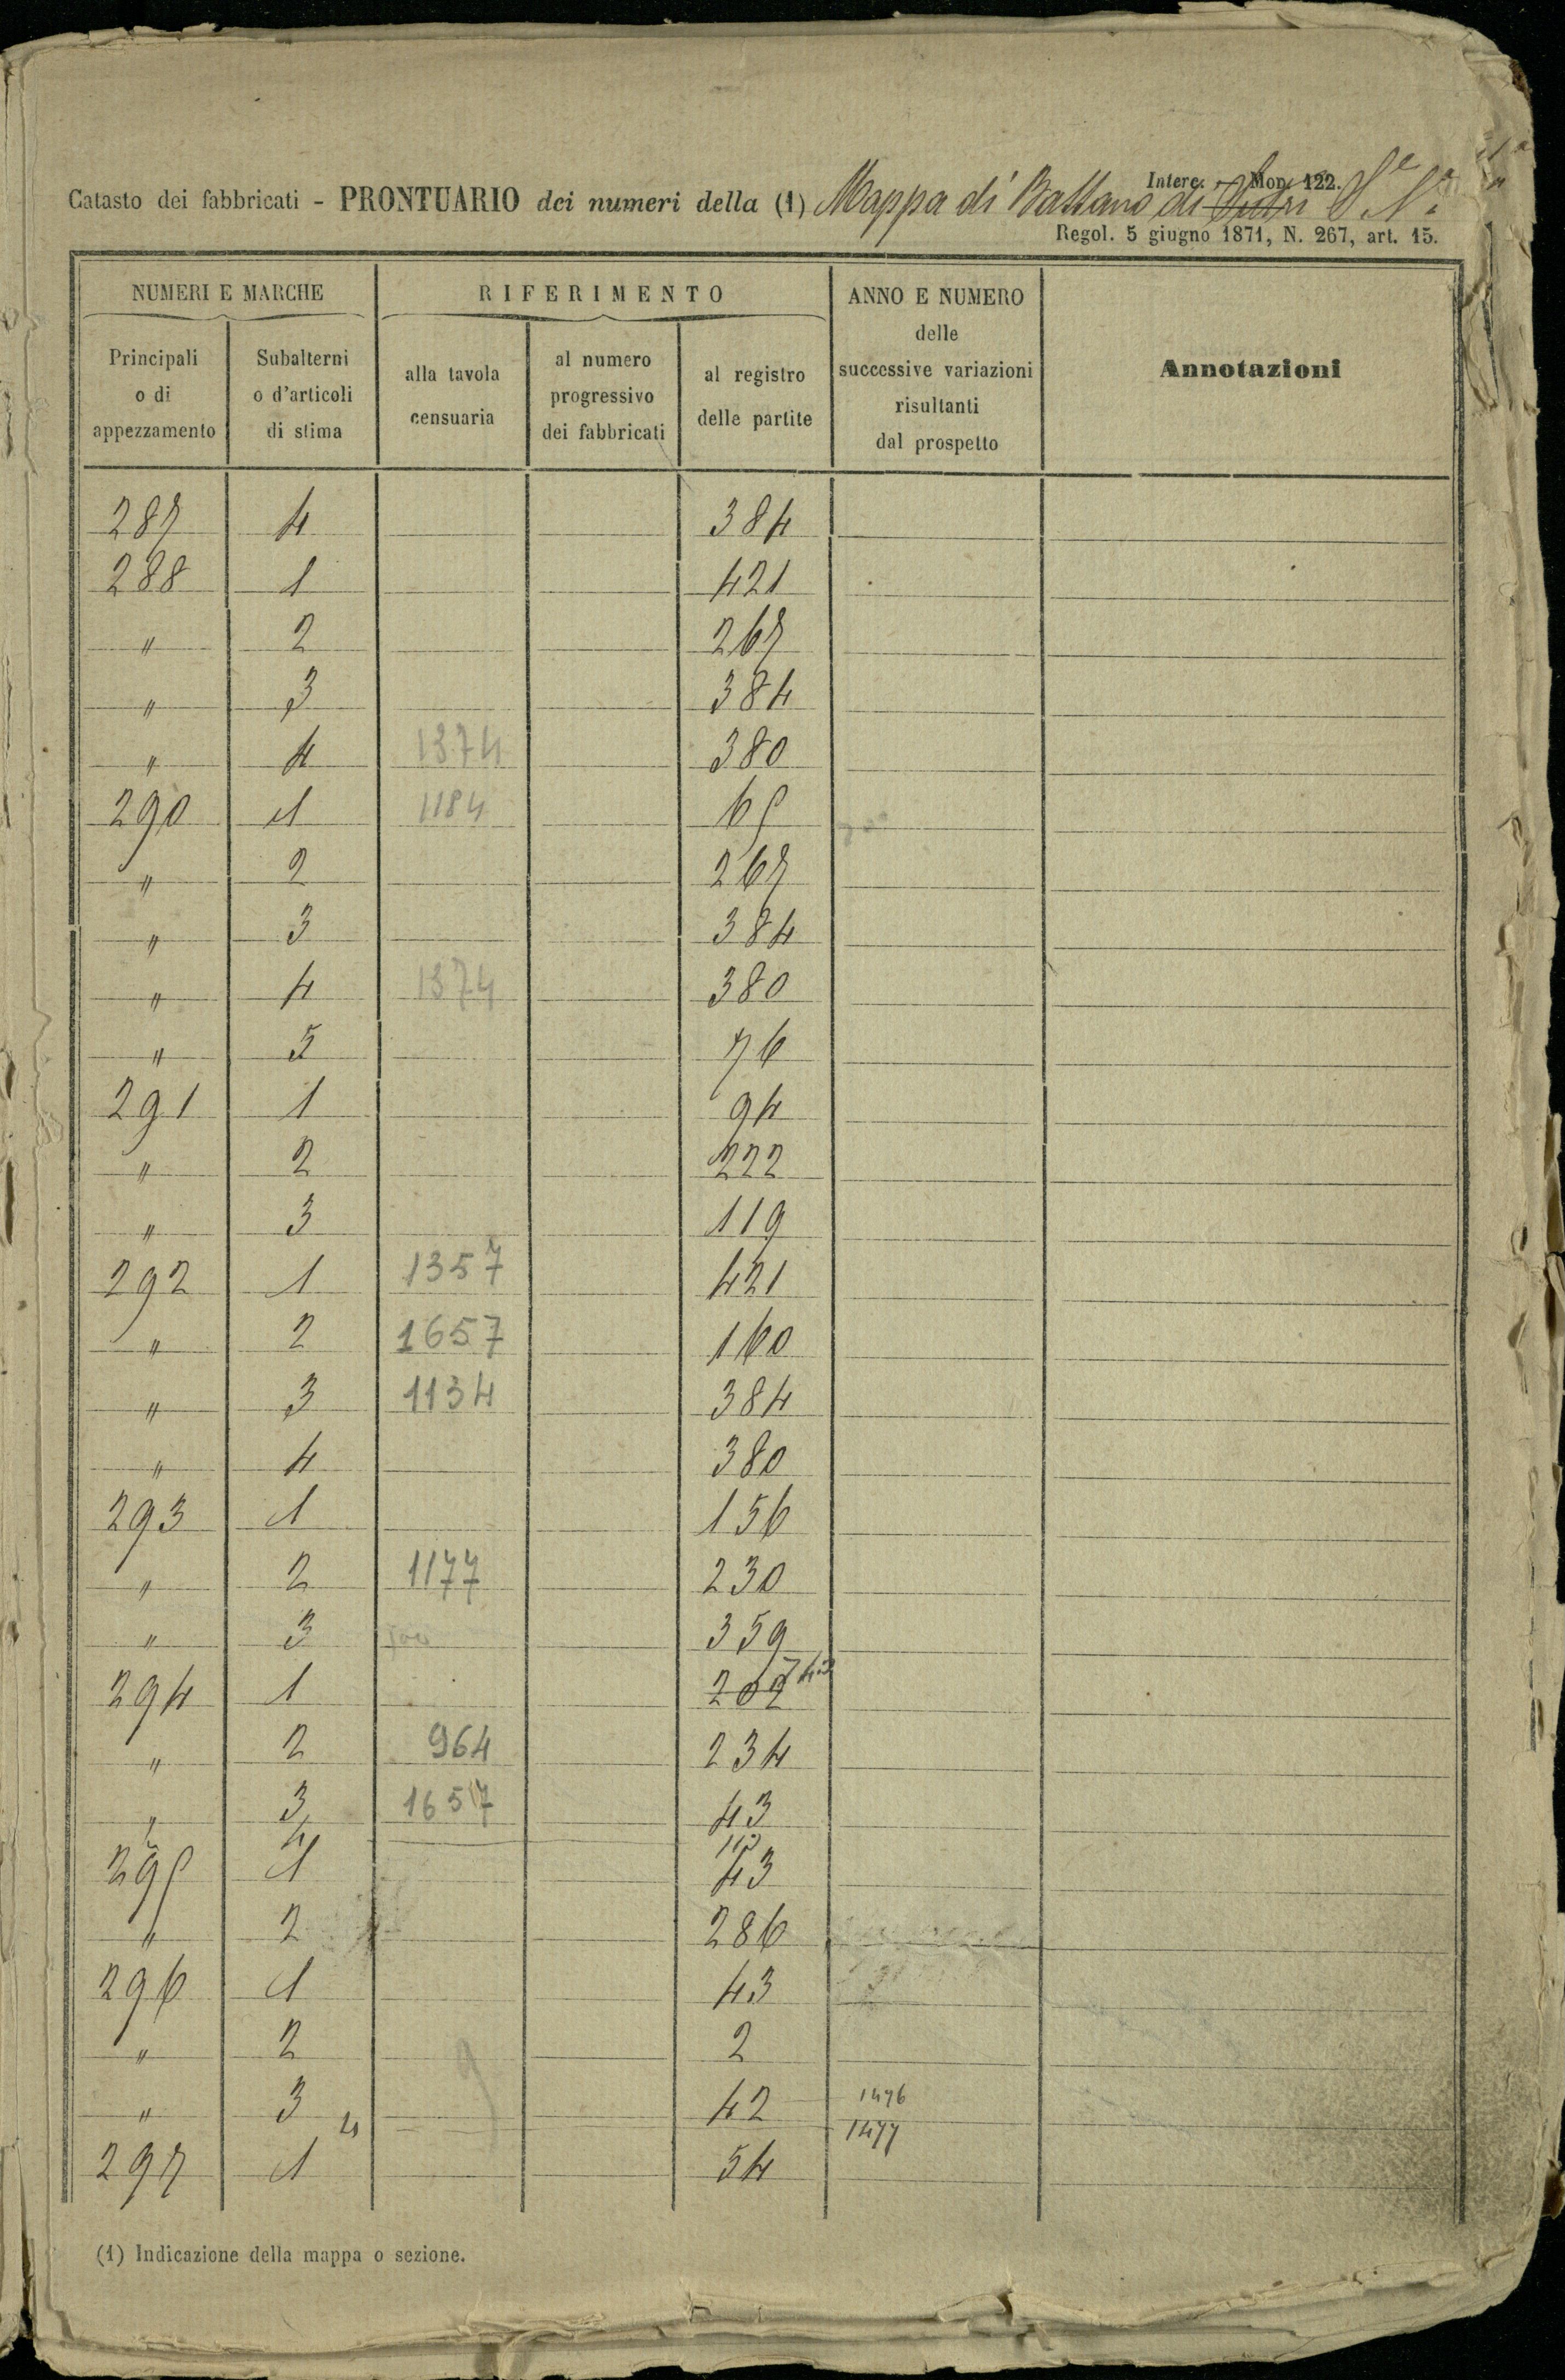 Interc. - Mod. 122.
Catasto dei fabbricati - PRONTUARIO dei numeri della (1) Mappa di Bassano di Sutri
Regol. 5 giugno 1871, N. 267, art. 15.
NUMERI E MARCHE RIFERIMENTO ANNO E NUMERO delle successive variazioni risultanti dal prospetto Annotazioni
Principali o di appezzamento Subalterni o d'articoli di stima alla tavola censuaria al numero progressivo dei fabbricati al registro delle partite
287 4 384
288 1 421
" 2 267
" 3 384
" 4 1374 380
290 1 1184 65
" 2 267
" 3 384
" 4 1374 380
" 5 76
291 1 94
" 2 222
" 3 119
292 1 1357 421
" 2 1657 160
" 3 1134 384
" 4 380
293 1 156
" 2 1177 230
" 3 359
294 1 202
" 2 964 234
" 3 1657 43
" 4
295 1 43
" 2 286
296 1 43
" 2 2
" 3 42 1476
4 1477
297 1 54
(1) Indicazione della mappa o sezione.